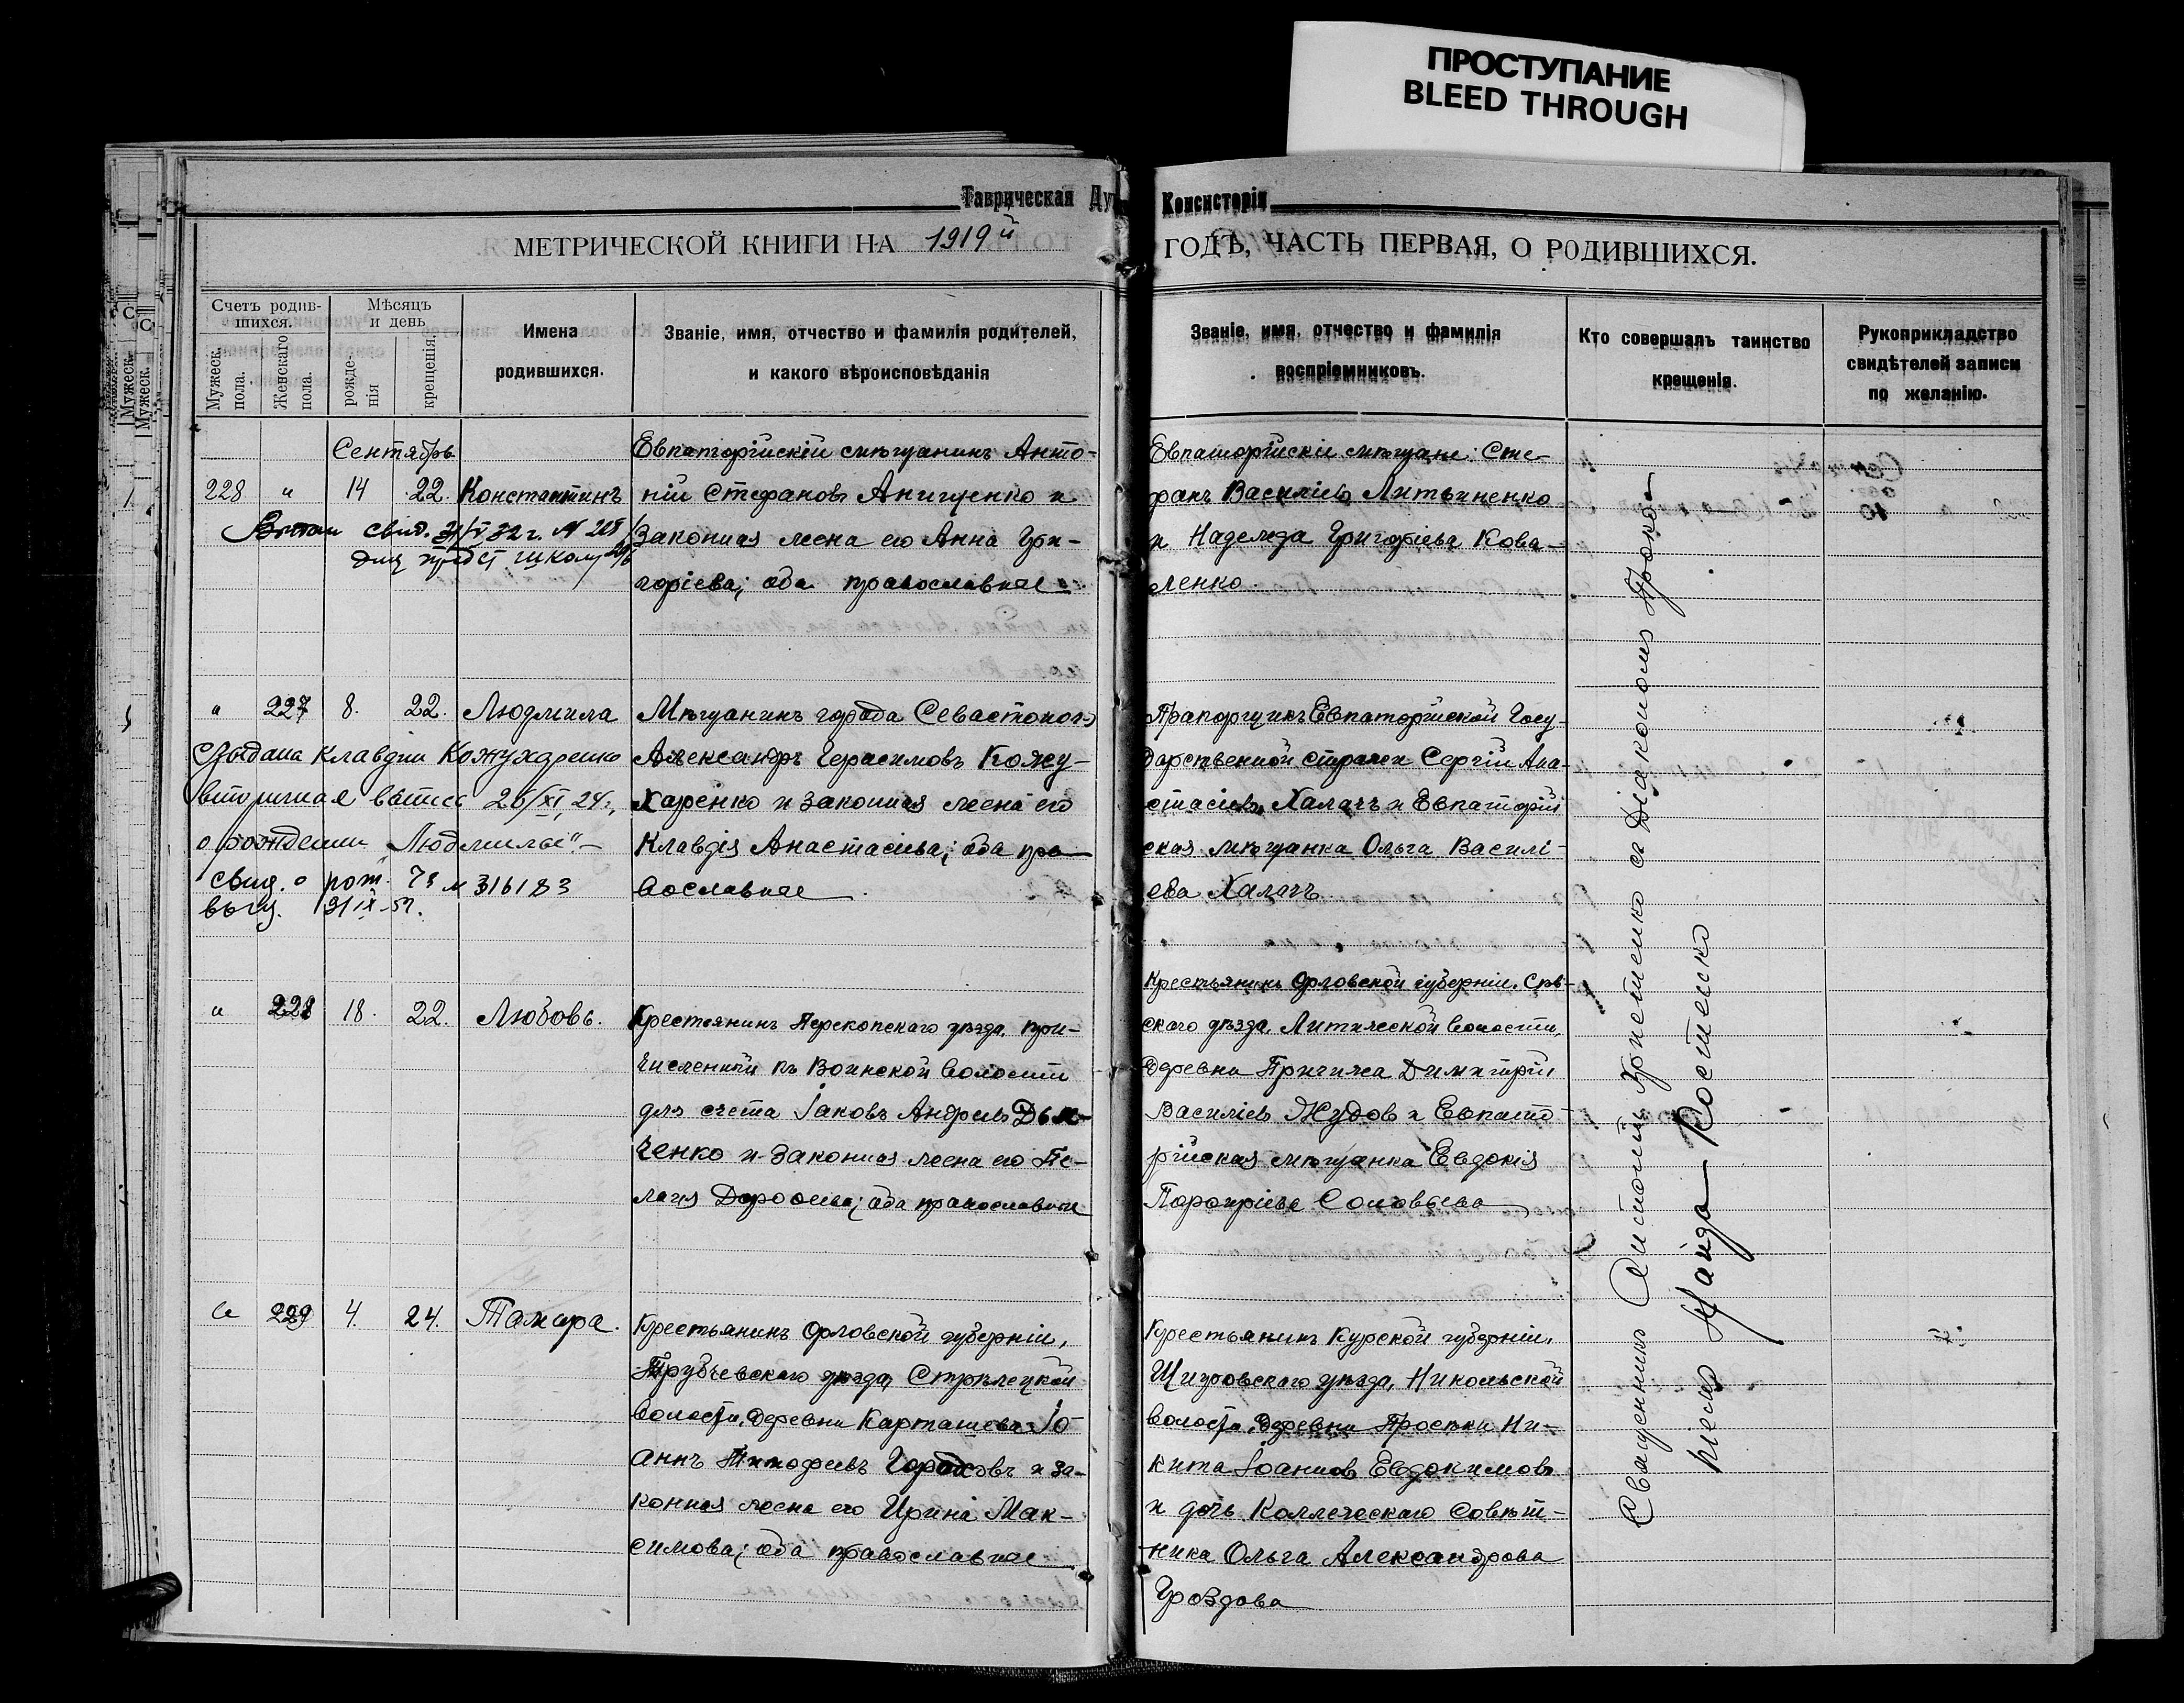 ПРОСТУПАНИЕ
BLEED THROUGH
Таврическая Ду Консисторіи
МЕТРИЧЕСКОЙ КНИГИ НА 1919й ГОДЪ, ЧАСТЬ ПЕРВАЯ, О РОДИВШИХСЯ.
Счетъ родив-
шихся.
Мужеск.
пола.
Женскаго
пола.
Мѣсяцъ
и день
рожде-
нія
крещенія.
Имена
родившихся.
Званіе, имя, отчество и фамилія родителей,
и какого вѣроисповѣданія
Званіе, имя, отчество и фамилія
воспріемниковъ.
Кто совершалъ таинство
крещенія.
Рукоприкладство
свидѣтелей записи
по желанію.
Сентябрь
228 " 14 22. Константинъ
свид.
школу
Евпаторійскій мѣщанинъ Анто-
ній Стефановъ Анищенко и
законная жена его Анна Гри-
горіева; оба православные
Евпаторійскіе мѣщане: Сте-
фанъ Василіевъ Литвиненко
и Надежда Григоріева Кова-
ленко
" 227 8. 22. Людмила
Выдана Клавдии Кожухаренко
вторичная выпись 26/XI 24 г.
о рождении "Людмилы" —
свид. о рож. № 316183
Мѣщанинъ города Севастополя
Александръ Герасимовъ Кожу-
харенко и законная жена его
Клавдія Анастасіева; оба пра-
вославные
Прапорщикъ Евпаторійской Госу-
дарственной стражи Сергій Ана-
стасіевъ Халачъ и Евпаторій
ская мѣщанка Ольга Василі-
ева Халачъ
" 228 18. 22. Любовь.
Крестьянинъ Перекопскаго уѣзда, при-
численный къ Воинской волости
для счета Іаковъ Андреевъ
ченко и законная жена его Пе-
лагія Дороѳеева; оба православные
Крестьянинъ Орловской губерніи, Сѣв-
скаго уѣзда, Литижской волости,
деревни Пригижа Димитрій
Василіевъ Жудов и Евпато-
рійская мѣщанка Евдокія
Порфиріева Соловьева
" 229 4. 24. Тамара.
Крестьянинъ Орловской губерніи,
Трубчевскаго уѣзда, Стрѣлецкой
волости, деревни Карташева Іо-
аннъ Тимофеевъ Городковъ и за-
конная жена его Ирина Мак-
симова; оба православные
Крестьянинъ Курской губерніи,
Щигровскаго уѣзда, Никольской
волости, деревни Проски Ни-
кита Іоанновъ Евдокимовъ
и дочь Коллежскаго Совѣт-
ника Ольга Александрова
Гроздова
Священникъ Антоній Хрищенко съ Діакономъ Проко-
піемъ Гайда-Костенко